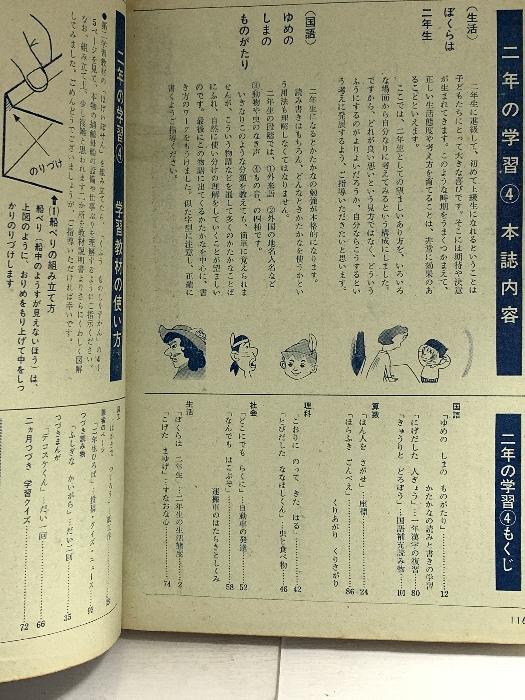 二年の学習④本誌内容
(生活)
ぼくらは
二年生
二年生に進級して、初めて上級生になれるということは
子どもたちにとって大きな喜びです。そこには期待や決意
が生まれてきます。このような時期をうまくつかまえて、
正しい生活態度や考え方を育てることは、非常に効果のあ
ることといえます。
ここでは、二年生としての望ましいあり方を、いろいろ
な場面から自分なりに考えてみるという構成にしました。
ですから、どれが良い悪いという見方ではなく、どういう
ふうにするのがよりよいだろうか、自分ならこうするとい
う考えに発展するよう、ご指導いただきたいと思います。
(国語)
ゆめの
しまの
ものがたり
二年生になるとかたかなの勉強が本格的になります。
読み書きはもちろん、どんなときかたかなを使うかとい
う用法も理解しなくてはなりません。
二年生の段階では、①外来語 ②外国の地名人名など
③動物や虫のなき声 ④もの音、の四種です。
いきなりこのような分類を教えても、簡単に覚えられま
せんが、こういう物語などを通して多くのかたかなことば
にふれ、自然に使い分けの理解をしていくことが望ましい
のです。最後にこの物語に出てくるかたかなを中心に、書
き方のワークをもうけました。似た字型に注意し、正確に
書くようご指導ください。
二年の学習④もくじ
国語
「ゆめの しまの ものがたり」
かたかなの読みと書きの学習……12
「にげだした 人ぎょう」…一年漢字の復習……80
「きゅうりと どろぼう」…国語補充読み物……101
算数
「ほん人を さがせ」…座標……24
「ほらふき ごんべえ」…
くりあがり くりさがり……86
理科
「こおりに のって きた はる」……42
「とびだした ななほしくん」…虫と食べ物……46
社会
「どこにでも らくだ」…自動車の発達……52
「なんでも はこぶぞ」……58
運搬車のはたらきとしくみ
生活
「ぼくらは 二年生」…二年生の生活態度……2
「こげた まゆげ」…すなおな心……74
116
二年の学習④ 学習教材の使い方
5ページを見て、本物の捕鯨母船の設備や仕事ぶりを理解するようにご指示ください。
なお、組み立てで、少し複雑と思われます二か所を教材説明書よりさらにくわしく図解
してみました。ごめんどうでございましょうが、ご指導いただければ幸いです。
のりづけ
(1)船べりの組み立て方
船べり(船中のようすが見えないほう)は、
上図のように、おりめをもり上げて中をしっ
かりのりづけします。
「二年生ひろば」…投稿・クイズ・ニュース
つづき読み物
「ふしぎな かいがら」…だい二回……35
つづきまんが
「デコスケくん」…だい一回……66
二ヵ月つづき 学習クイズ……72